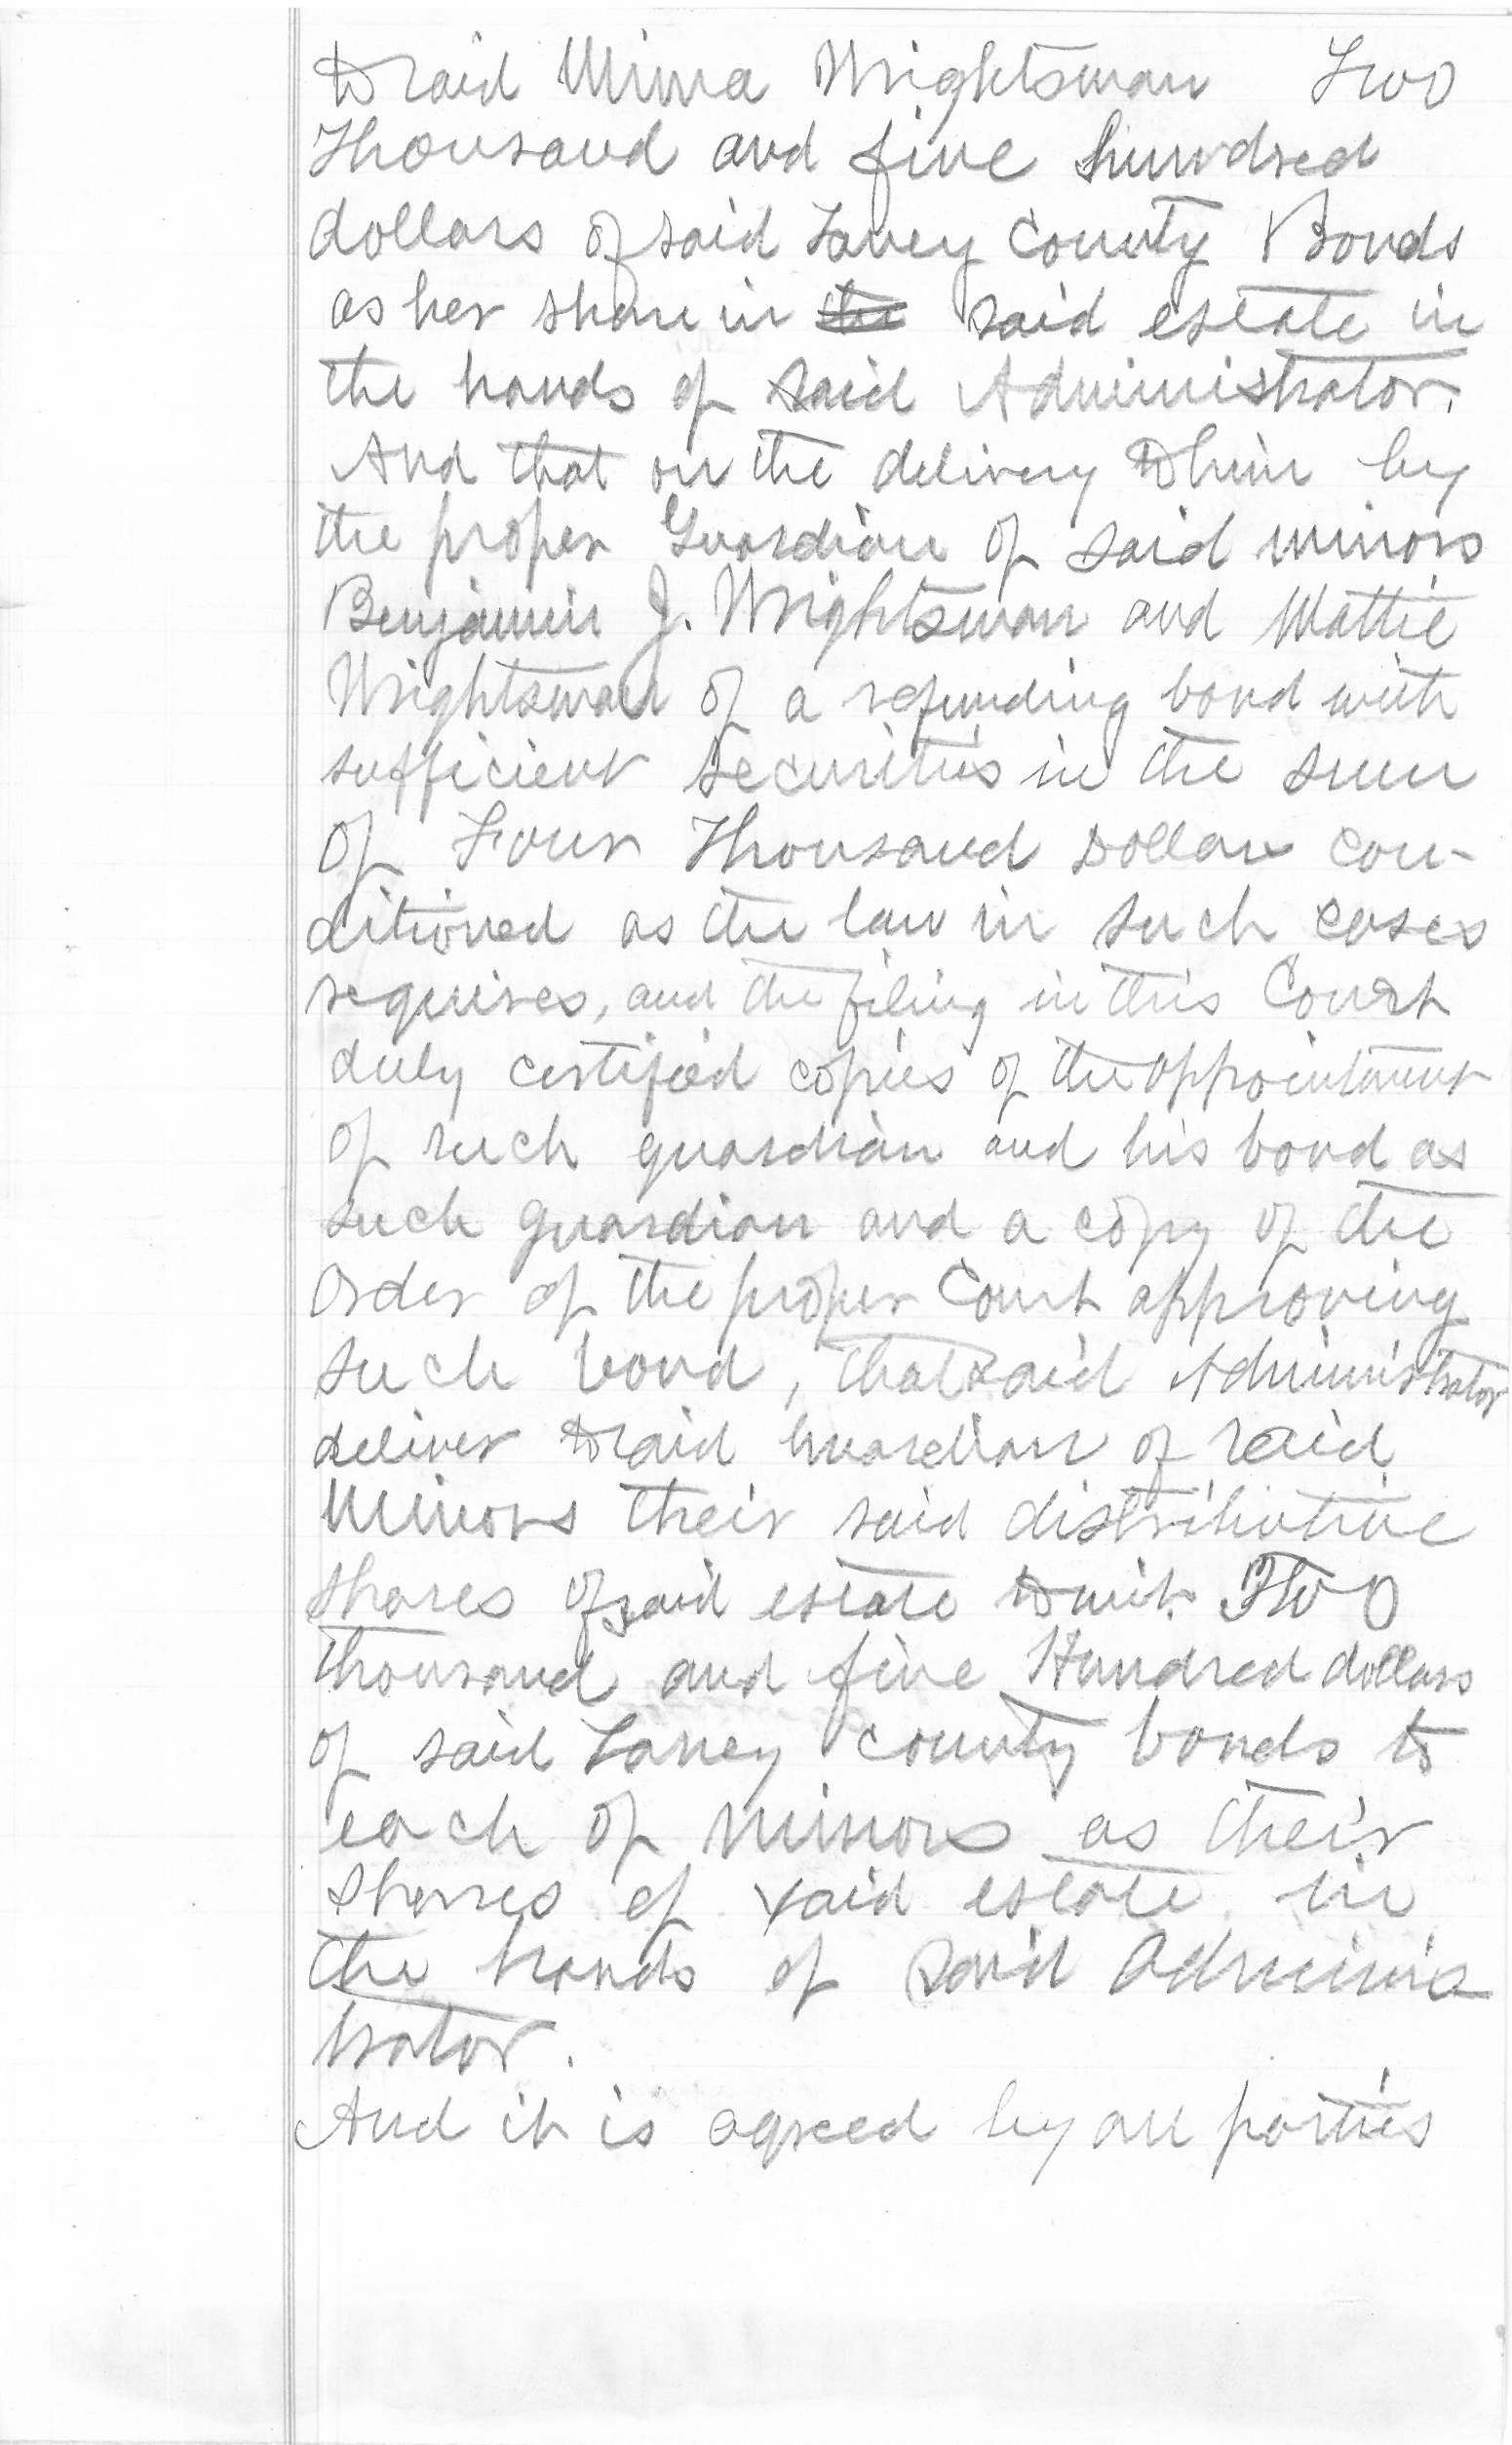 to said Minna Wrightsman Two
Thousand and five hundred
dollars of said Taney County Bonds
as her share in the said estate in
the hands of said Administrator.
And that on the delivery to him by
the proper Guardian of said minors
Benjamin J. Wrightsman and Mattie
Wrightsman of a refunding bond with
sufficient securities in the sum
of Four Thousand Dollars con-
ditioned as the law in such cases
requires, and the filing in this Court
duly certified copies of the appointment
of such guardian and his bond as
such guardian and a copy of the
order of the proper Court approving
such bond, that said Administrator
deliver to said Guardian of said
Minors their said distributive
shares of said estate to wit. Two
thousand and five Hundred dollars
of said Taney County bonds to
each of minors as their
shares of said estate in
the hands of said Adminis
trator.
And it is agreed by all parties